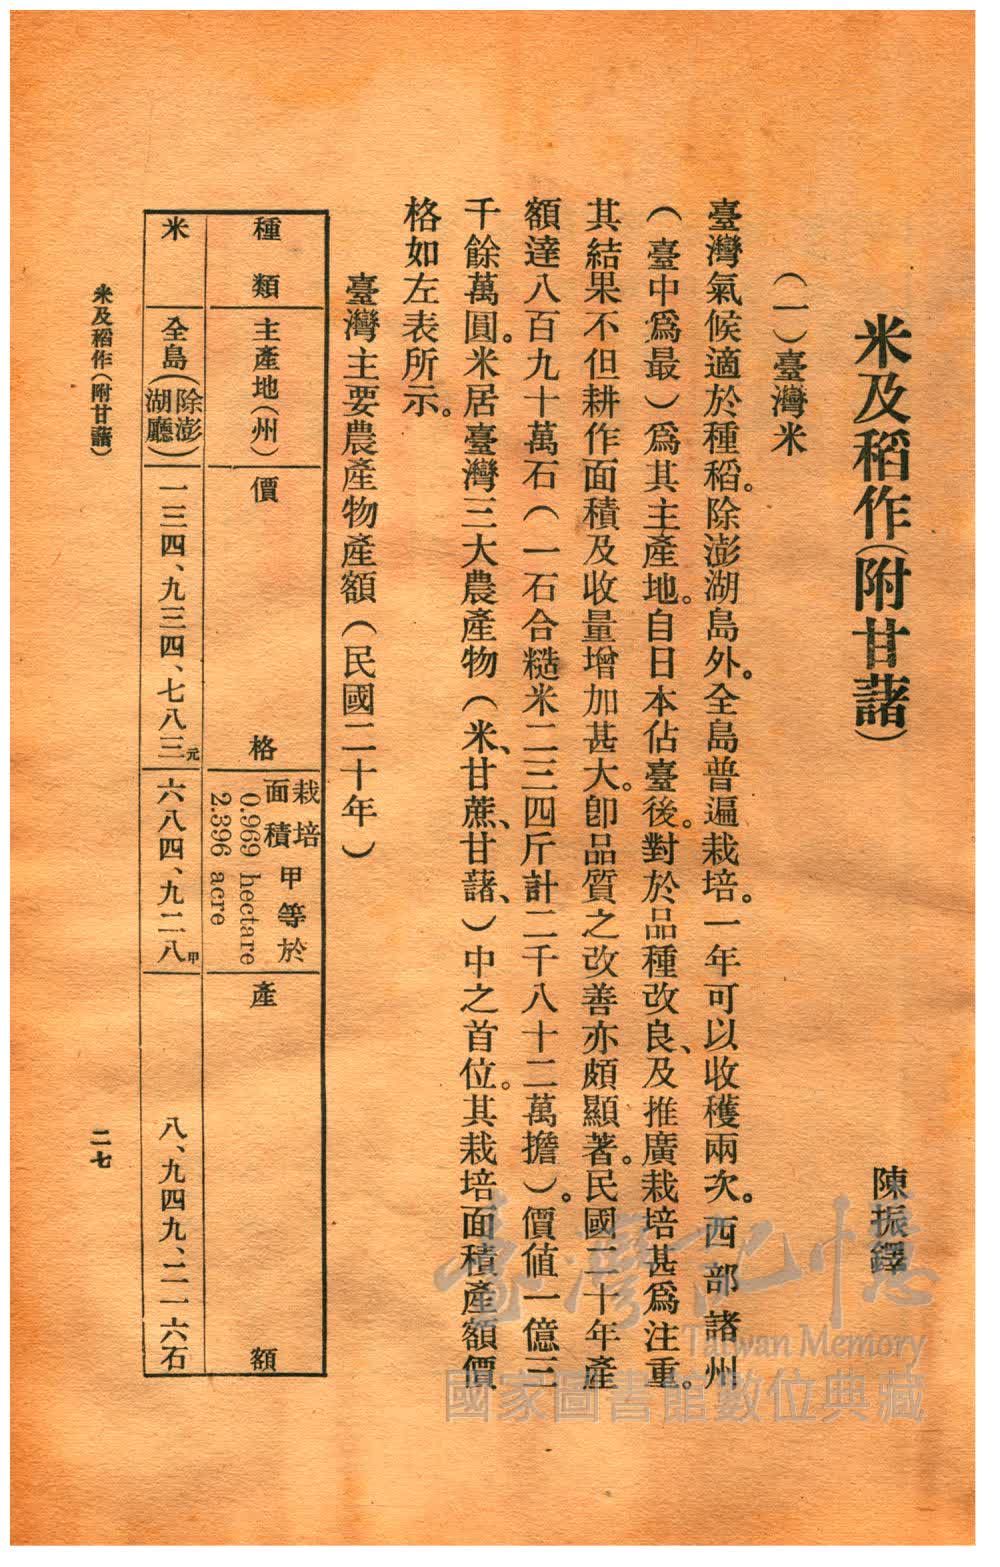 米及稻作(附甘藷)
陳振鐸
(一)臺灣米
臺灣氣候適於種稻。除澎湖島外。全島普遍栽培。一年可以收穫兩次。西部諸州
(臺中爲最)爲其主產地。自日本佔臺後。對於品種改良、及推廣栽培甚爲注重。
其結果不但耕作面積及收量增加甚大。卽品質之改善亦頗顯著。民國二十年產
額達八百九十萬石(一石合糙米二三四斤計二千八十二萬擔)。價值一億三
千餘萬圓。米居臺灣三大農產物(米、甘蔗、甘藷、)中之首位。其栽培面積產額價
格如左表所示。
臺灣主要農產物產額(民國二十年)
種類
主產地(州)
價格
栽培面積 甲等於 0.969 hectare 2.396 acre
產額
米
全島(除澎湖廳)
一三四、九三四、七八三元
六八四、九二八甲
八、九四九、二一六石
米及稻作(附甘藷)
二七
臺灣記憶
Taiwan Memory
國家圖書館數位典藏